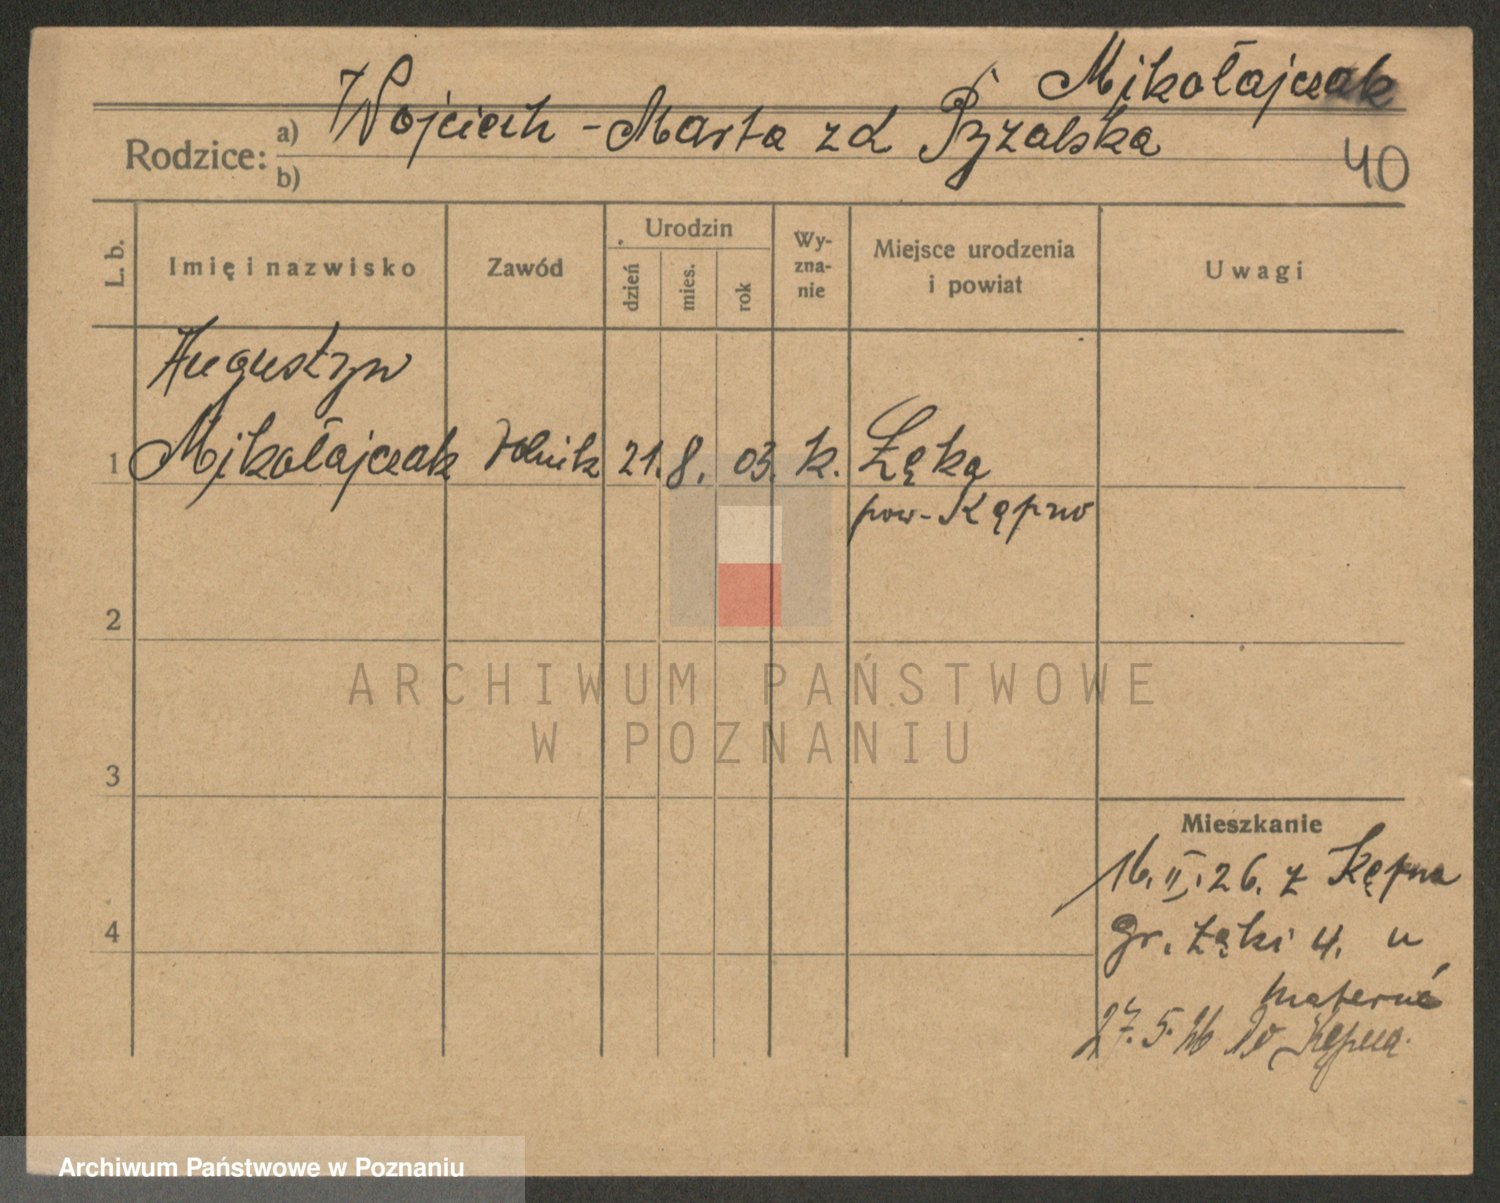 Mikołajczak
Rodzice: a) Wojciech - Marta zd Pyzalska
b)
40
L. b.
Imię i nazwisko
Zawód
Urodzin
dzień
mies.
rok
Wy-
zna-
nie
Miejsce urodzenia
i powiat
Uwagi
Augustyn
1 Mikołajczak rolnik 21. 8. 03. k. Łęka
pow. Kępno
2
3
4
ARCHIWUM PAŃSTWOWE
W POZNANIU
Mieszkanie
16.II.26. z Kępna
gr. Łąki 4. u
27.5.26 do Kępna.
Archiwum Państwowe w Poznaniu